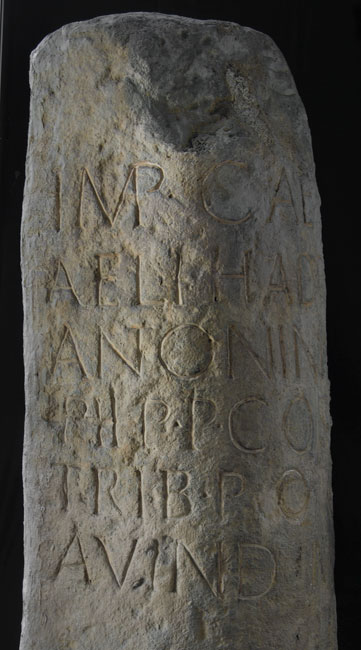 IMP· CAE
AELI HAD
ANONIN
PII P·P·CO
TRIB·PO
AVIND